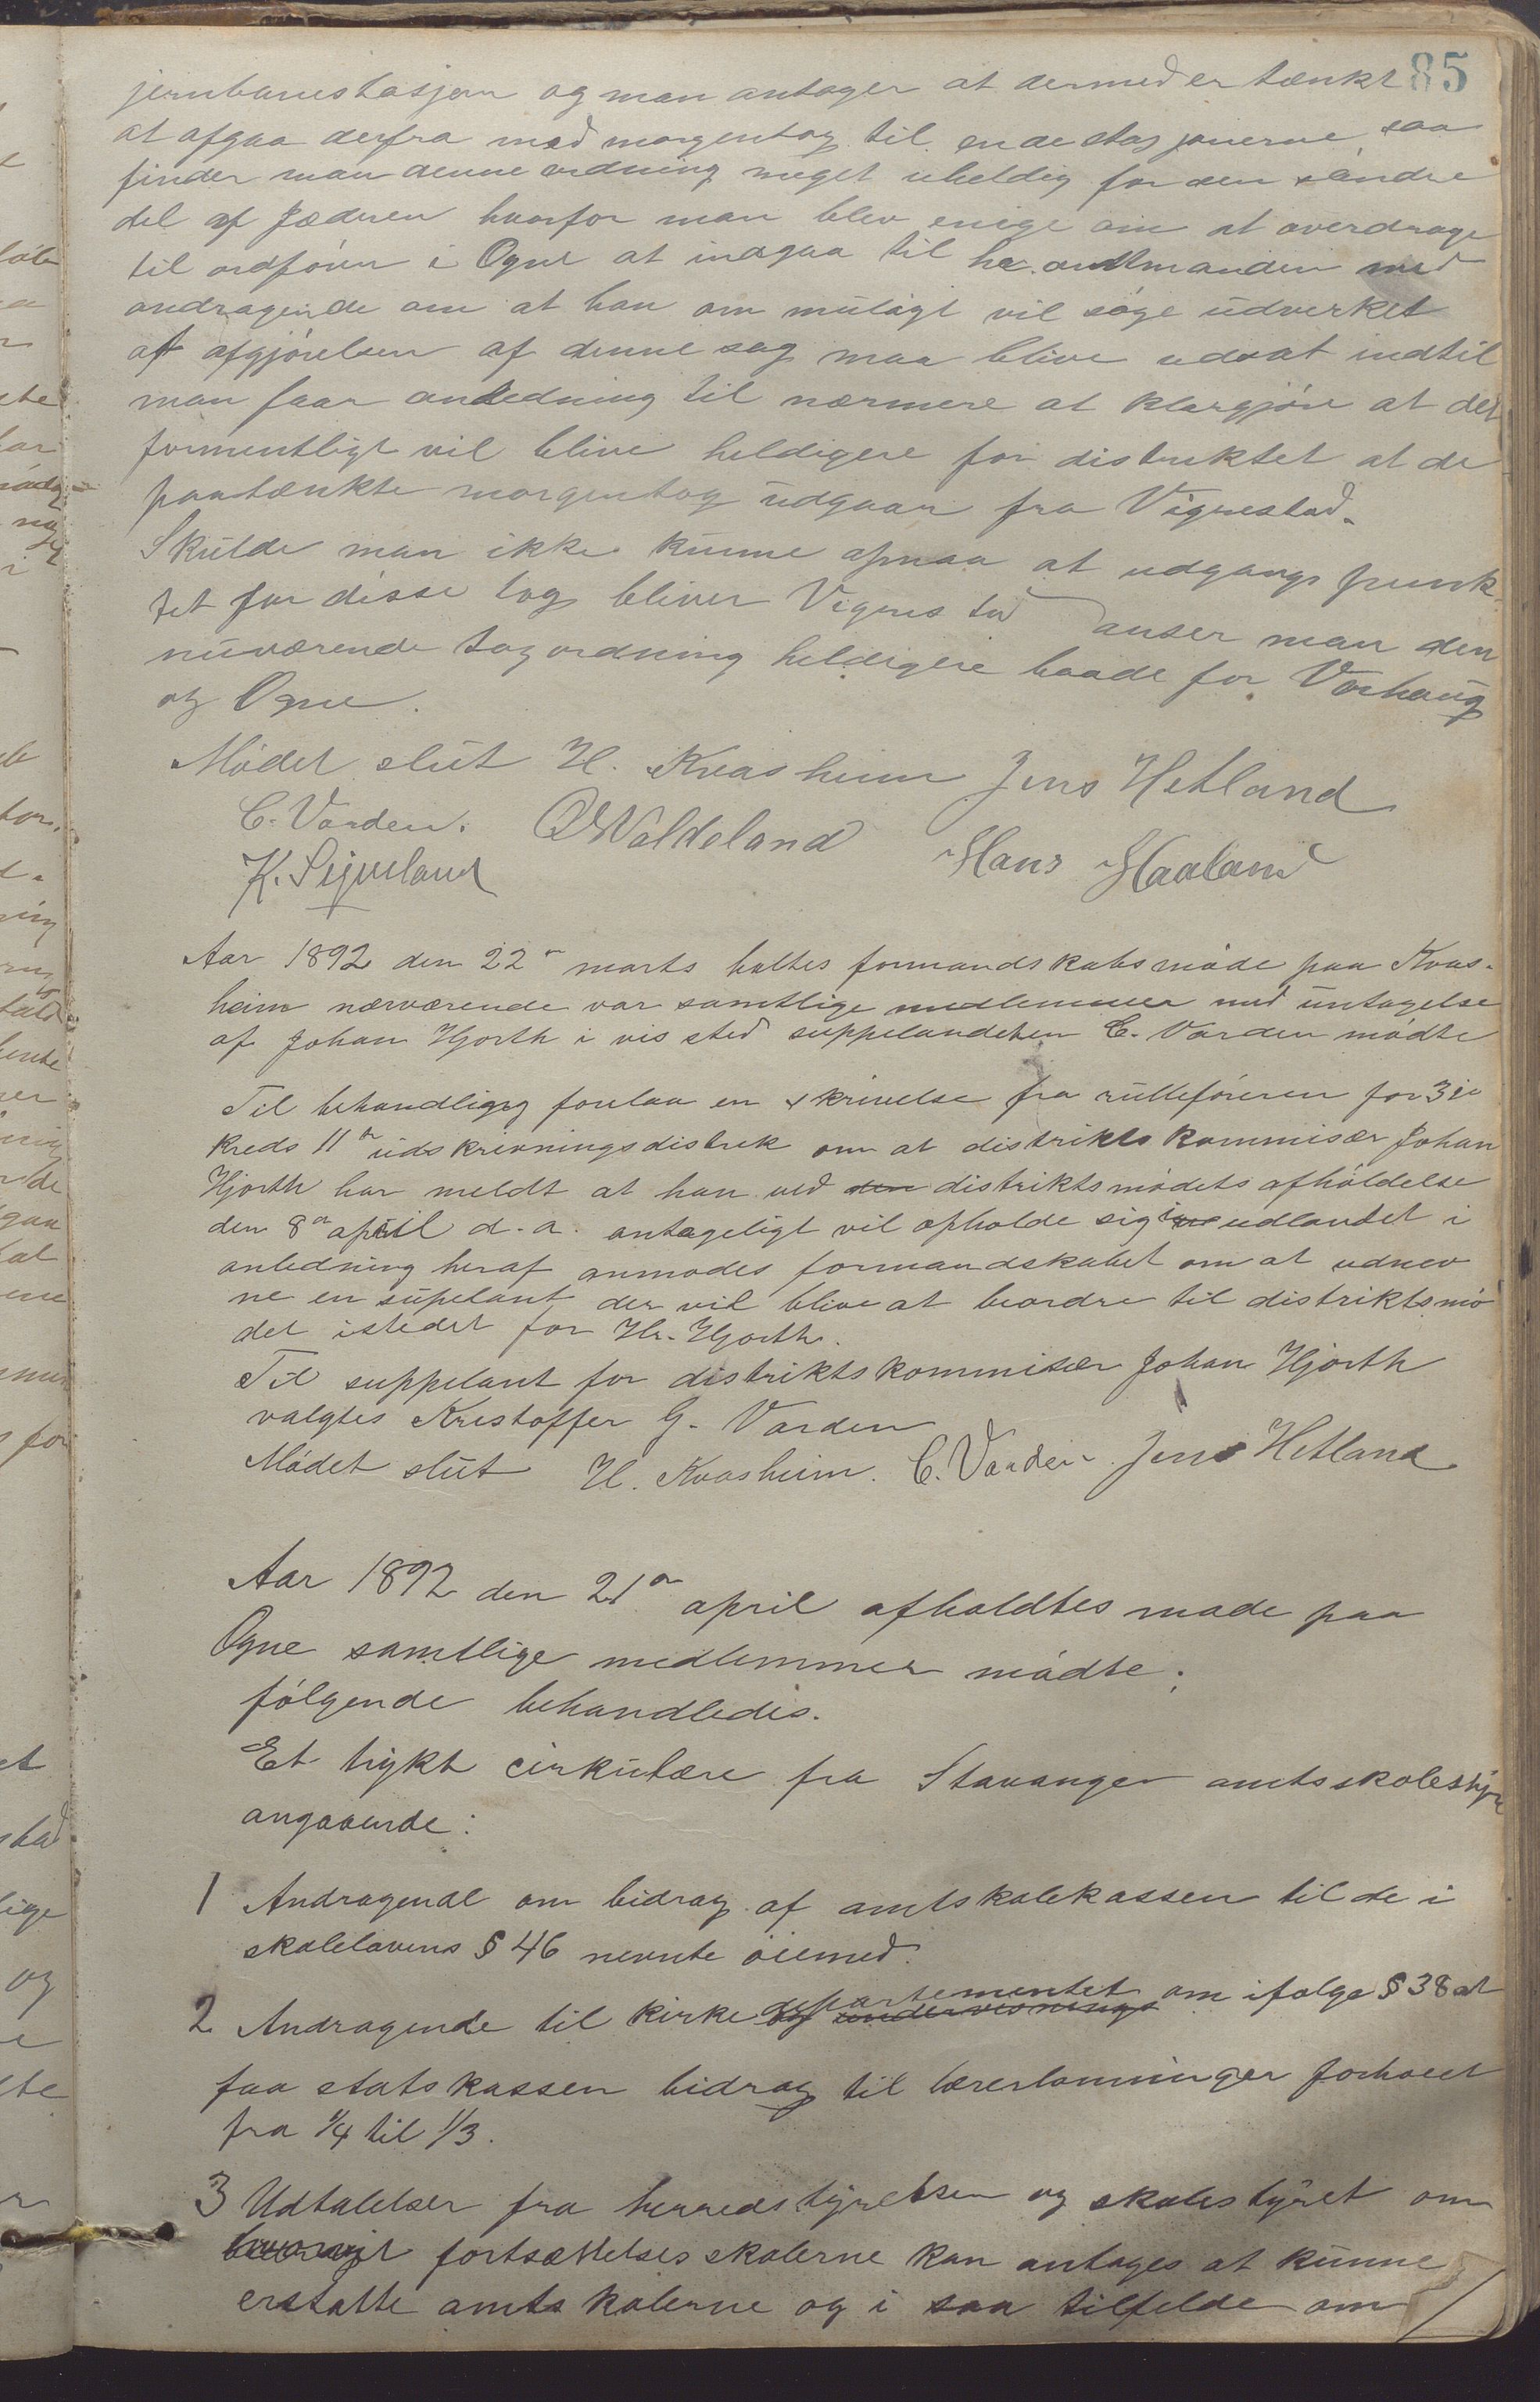 85
jernbanestasjon og man antager at dermed er tænkt
at afgaa derfra med morgentog til endestasjonerne, saa
finder man denne ordning meget uheldig for den søndre
del af Jæderen hvorfor man blev enige om at overdrage
til ordføren i Ogne at indgaa til hr. amtmanden med
andragende om at han om muligt vil søge udverket
at afgjørelsen af denne sag maa blive udsat indtil
man faar anledning til nærmere at klargjøre at det
formentligt vil blive heldigere for distriktet at de
paatænkte morgentog udgaar fra Vigrestad.
Skulde man ikke kunne opnaa at udgangspunk
tet for disse tog bliver Vigrestad anser man den
nuværende togordning heldigere baade for Varhaug
og Ogne.
Mødet slut H. Kvasheim Jens Hetland
C. Varden. O Waldeland Hans Haaland
K. Sigveland
Aar 1892 den 22n marts holtes formandskabsmøde paa Kvas-
heim nærværende var samtlige medlemmer med untagelse
af Johan Hjorth i vis sted suppelandeten C. Varden mødte
Til behandligng forelaa en skrivelse fra rulleføreren for 3je
kreds 11te udskrivningsdistrik om at distriktskommisær Johan
Hjorth har meldt at han ved den distriktsmødets afholdelse
den 8n april d. a. antageligt vil opholde sig i udlandet i
anledning heraf anmodes formandskabet om at udnev
ne en supelant der vil blive at beordre til distriktsmø
det istedet for Hr. Hjorth.
Til suppelant for distriktskommisær Johan Hjorth
valgtes Kristoffer G. Varden
Mødet slut H. Kvasheim. C. Varden. Jens Hetland
Aar 1892 den 21n april afholdtes møde paa
Ogne samtlige medlemmer mødte;
følgende behandledes.
Et trykt cirkulære fra Stavanger amtsskolestyre
angaaende:
1 Andragende om bidrag af amtskolekassen til de i
skolelovens § 46 nevnte øiemed.
2 Andragende til kirke og undervisnings departementet om ifølge § 38 at
faa statskassen bidrag til lærerlønninger forhøiet
fra 1/4 til 1/3.
3 Udtalelser fra herredstyrelsen og skolestyret om
hvorvit fortsættelsesskolerne kan antages at kunne
erstatte amtskolerne og i saa tilfelde om